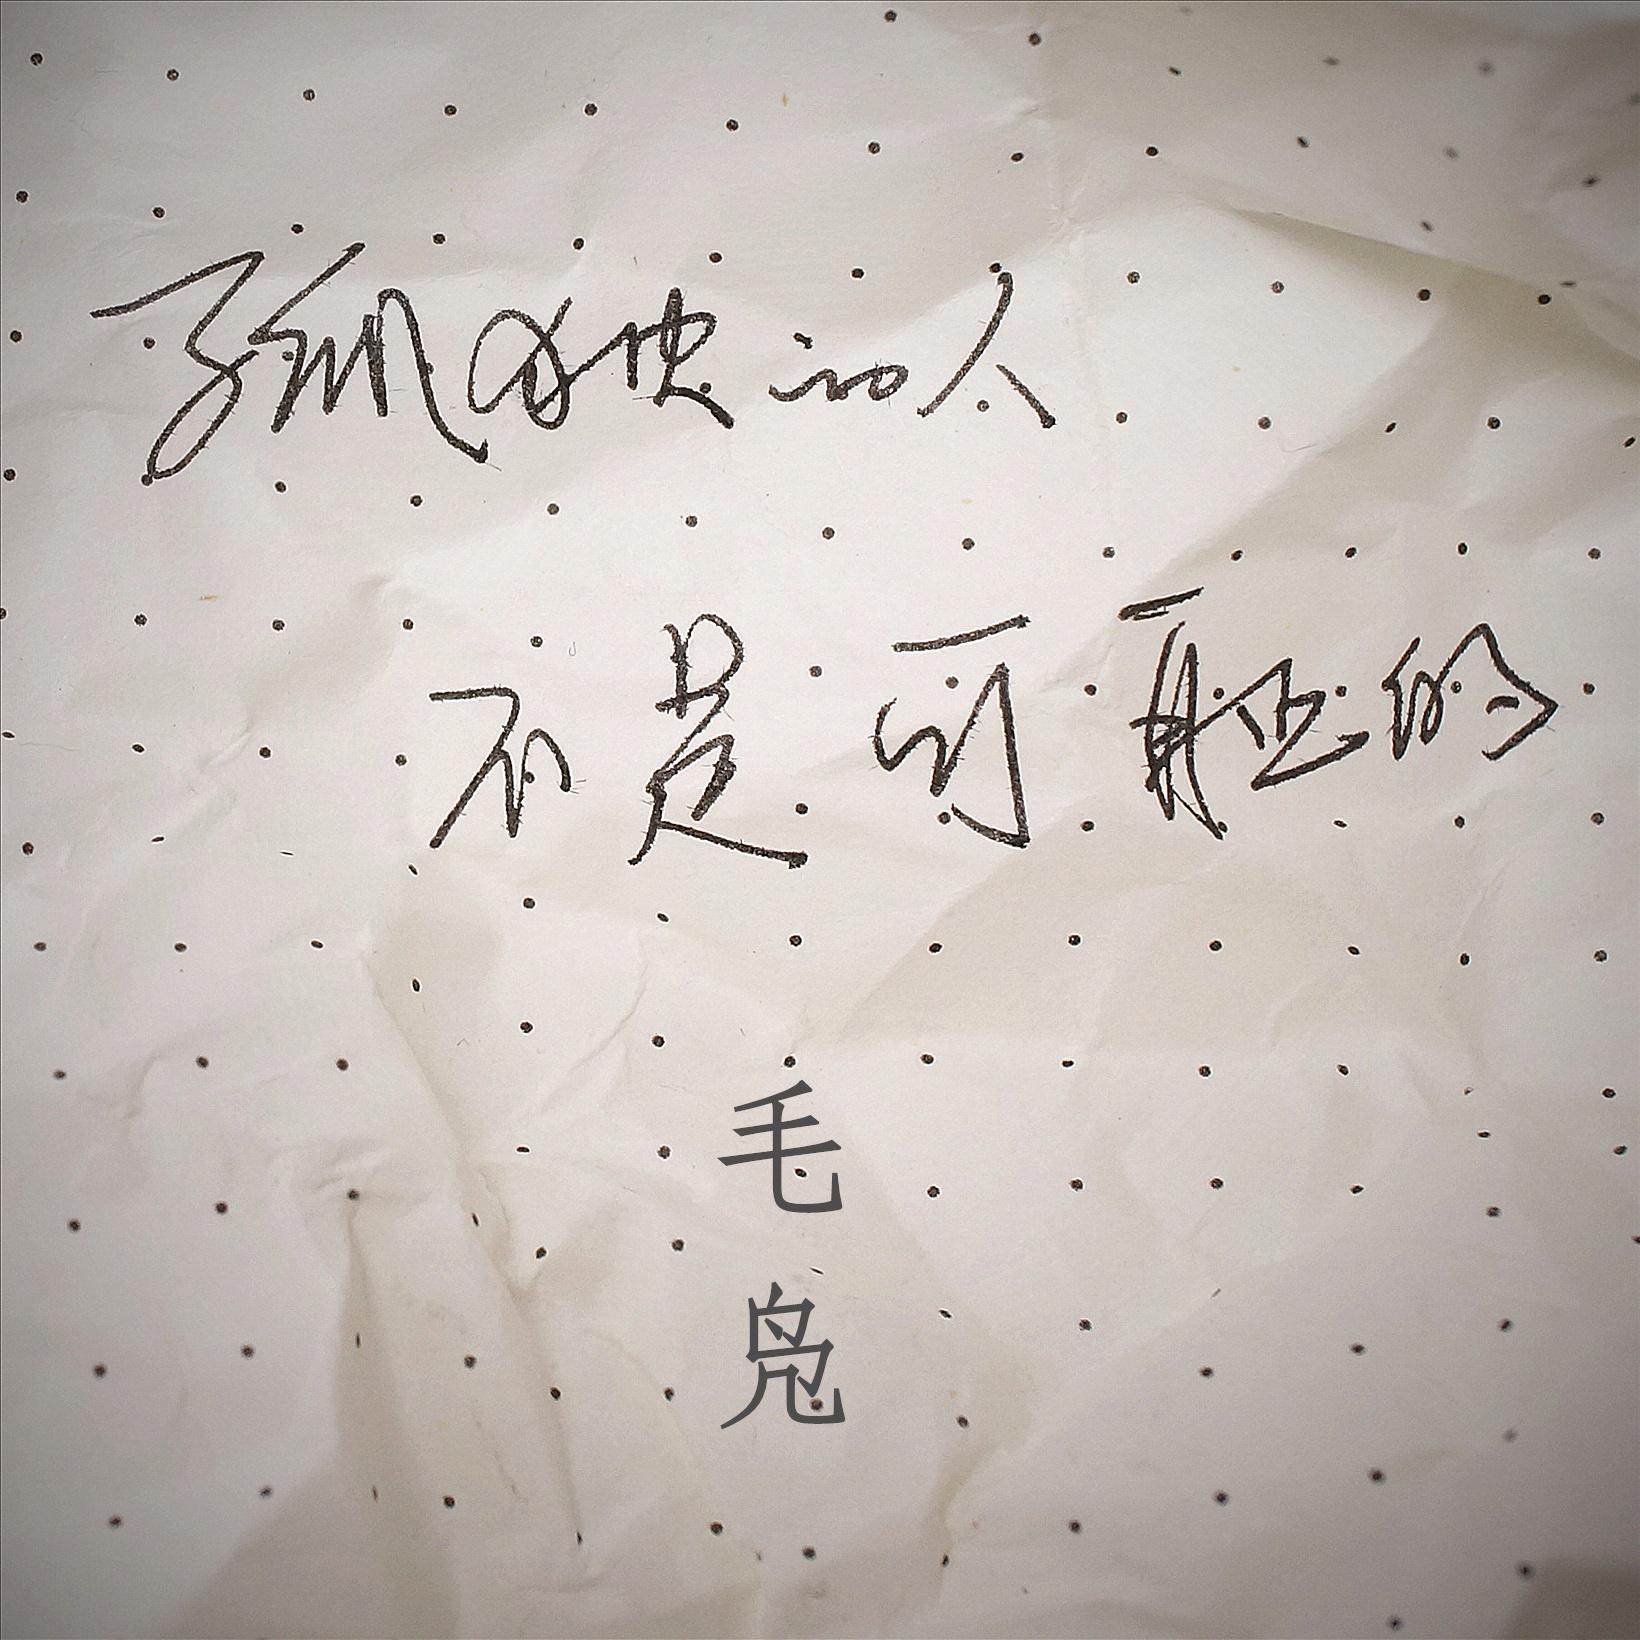 孤独的人
不是可耻的
毛
凫